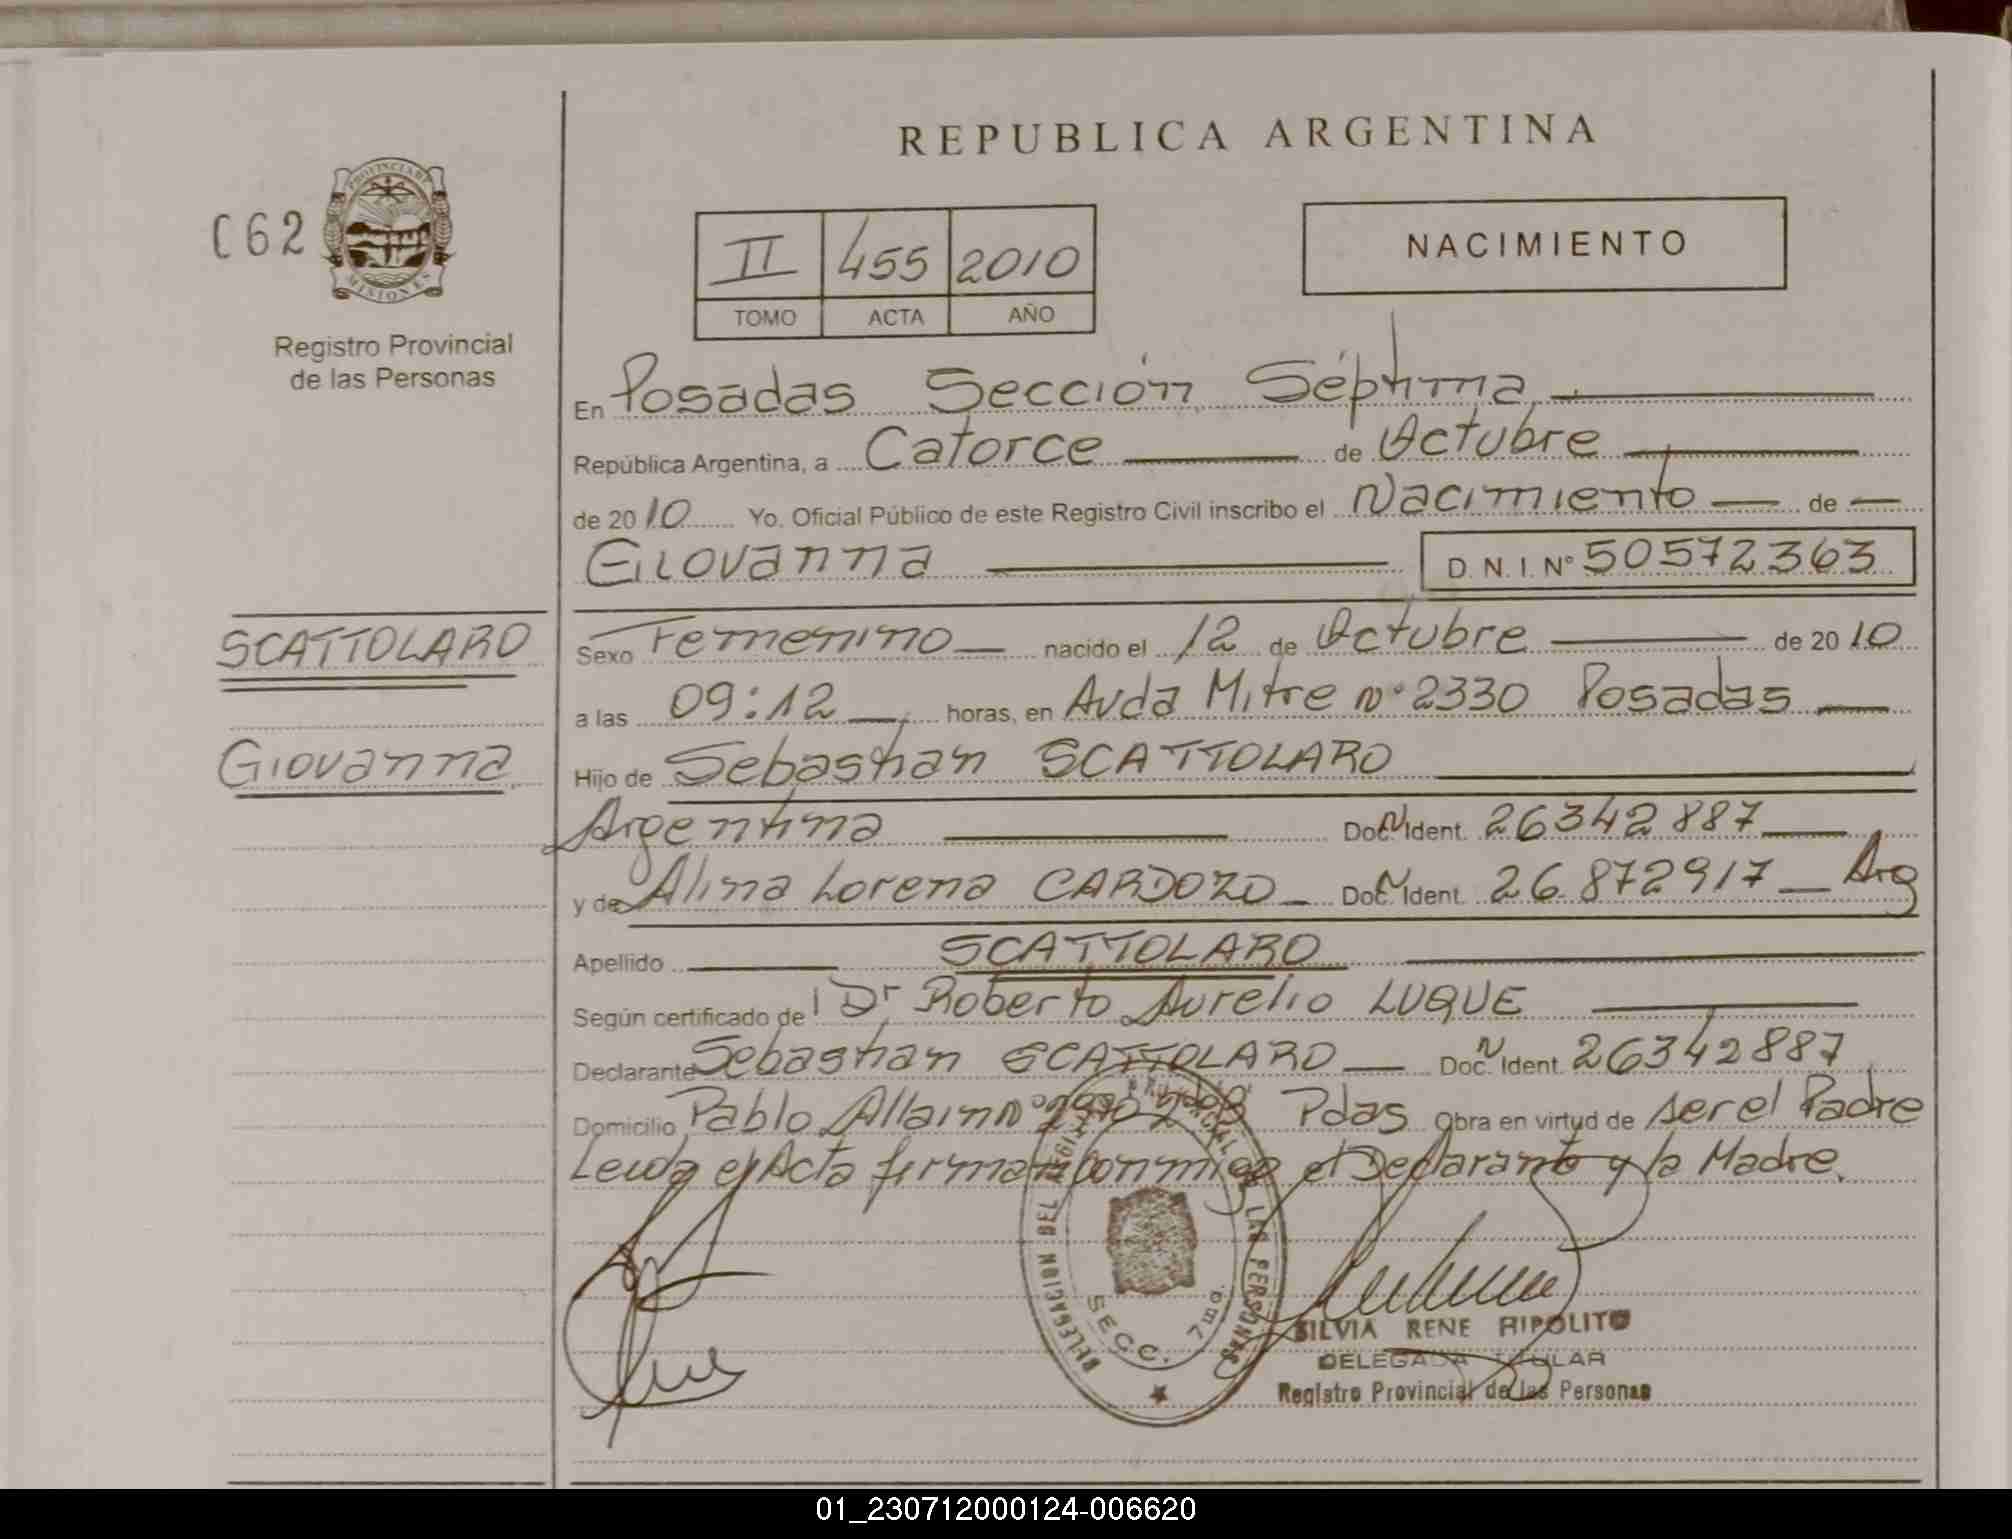 REPUBLICA ARGENTINA
062
PROVINCIA DE
MISIONES
Registro Provincial
de las Personas
II 455 2010
TOMO ACTA AÑO
NACIMIENTO
En Posadas Sección Séptima
República Argentina, a Catorce de Octubre
de 2010 Yo. Oficial Público de este Registro Civil inscribo el Nacimiento de
Giovanna D. N. I. Nº 50572363
SCATTOLARO
Giovanna
Sexo Femenino nacido el 12 de Octubre de 2010
a las 09:12 horas, en Avda Mitre nº 2330 Posadas
Hijo de Sebastian SCATTOLARO
Argentina Doc. Ident. 26342887
y de Alina Lorena CARDOZO Doc. Ident. 26.872917 Arg
Apellido SCATTOLARO
Según certificado de Dr Roberto Aurelio LUQUE
Declarante Sebastian SCATTOLARO Doc. Ident. 26342887
Domicilio Pablo Allain nº Pdas Obra en virtud de ser el Padre
Leida el Acta firman conmigo el Declarante y la Madre.
DELEGACION DEL REGISTRO PROVINCIAL DE LAS PERSONAS
SECC. 7ma.
SILVIA RENE RIPOLITO
DELEGADA TITULAR
Registro Provincial de las Personas
01_230712000124-006620